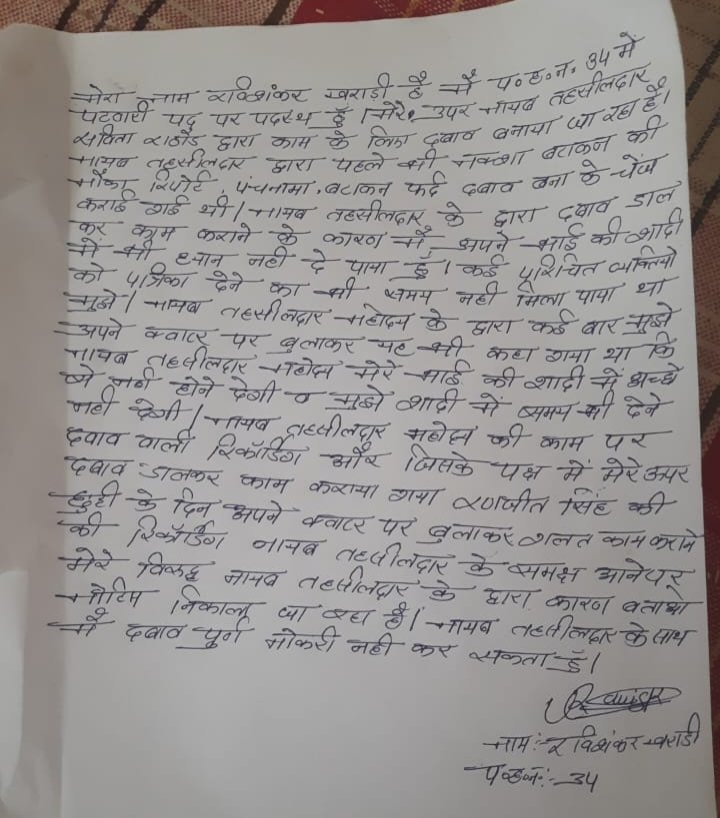 मेरा नाम रविशंकर खराडी है मैं प.ह.न. 34 में
पटवारी पद पर पदस्थ हूँ। मेरे उपर नायब तहसीलदार
सविता राठौड द्वारा काम के लिए दबाव बनाया जा रहा है।
नायब तहसीलदार द्वारा पहले भी नक्शा बटाकन की
मौका रिपोर्ट, पंचनामा, बटाकन फर्द दबाव बना के चेंज
कराई गई थी। नायब तहसीलदार के द्वारा दबाव डाल
कर काम कराने के कारण मैं अपने भाई की शादी
में भी ध्यान नही दे पाया हूँ। कई परिचित व्यक्तियो
को पत्रिका देने का भी समय नही मिला पाया था
मुझे। नायब तहसीलदार महोदय के द्वारा कई बार मुझे
अपने क्वाटर पर बुलाकर यह भी कहा गया था कि
नायब तहसीलदार महोदय मेरे भाई की शादी में अच्छे
से नही होने देगी व मुझे शादी में समय भी देने
नही देगी। नायब तहसीलदार महोदय की काम पर
दबाव वाली रिकॉर्डिंग और जिसके पक्ष में मेरे ऊपर
दबाव डालकर काम कराया गया रणजीत सिंह की
छुट्टी के दिन अपने क्वाटर पर बुलाकर गलत काम कराने
की रिकॉर्डिंग नायब तहसीलदार के समक्ष आने पर
मेरे विरुद्ध नायब तहसीलदार के द्वारा कारण बताओ
नोटिस निकाला जा रहा है। नायब तहसीलदार के साथ
मैं दबाव पुर्ण नौकरी नही कर सकता हूँ।
नाम:- रविशंकर खराडी
प.ह.न.:- 34